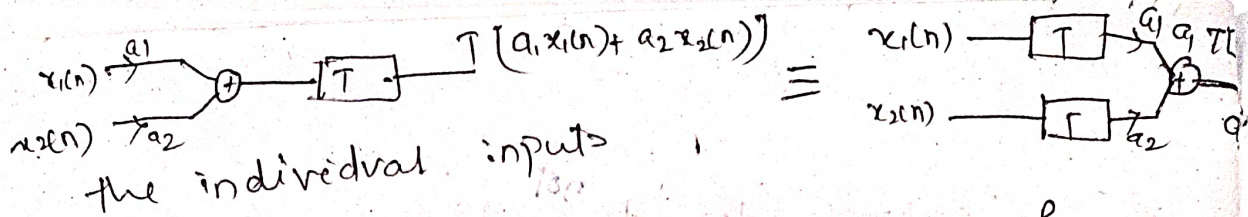 x1(n) a1 + T T[a1x1(n) + a2x2(n)] ≡ x1(n) T a1 a1 T[
x2(n) a2 x2(n) T a2 +
the individual inputs